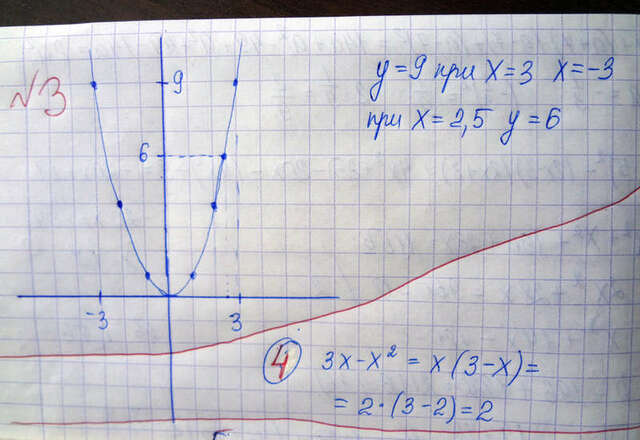 №3
9
6
-3 3
y=9 при x=3 x=-3
при x=2,5 y=6
4 3x-x² = x(3-x)=
= 2·(3-2)=2